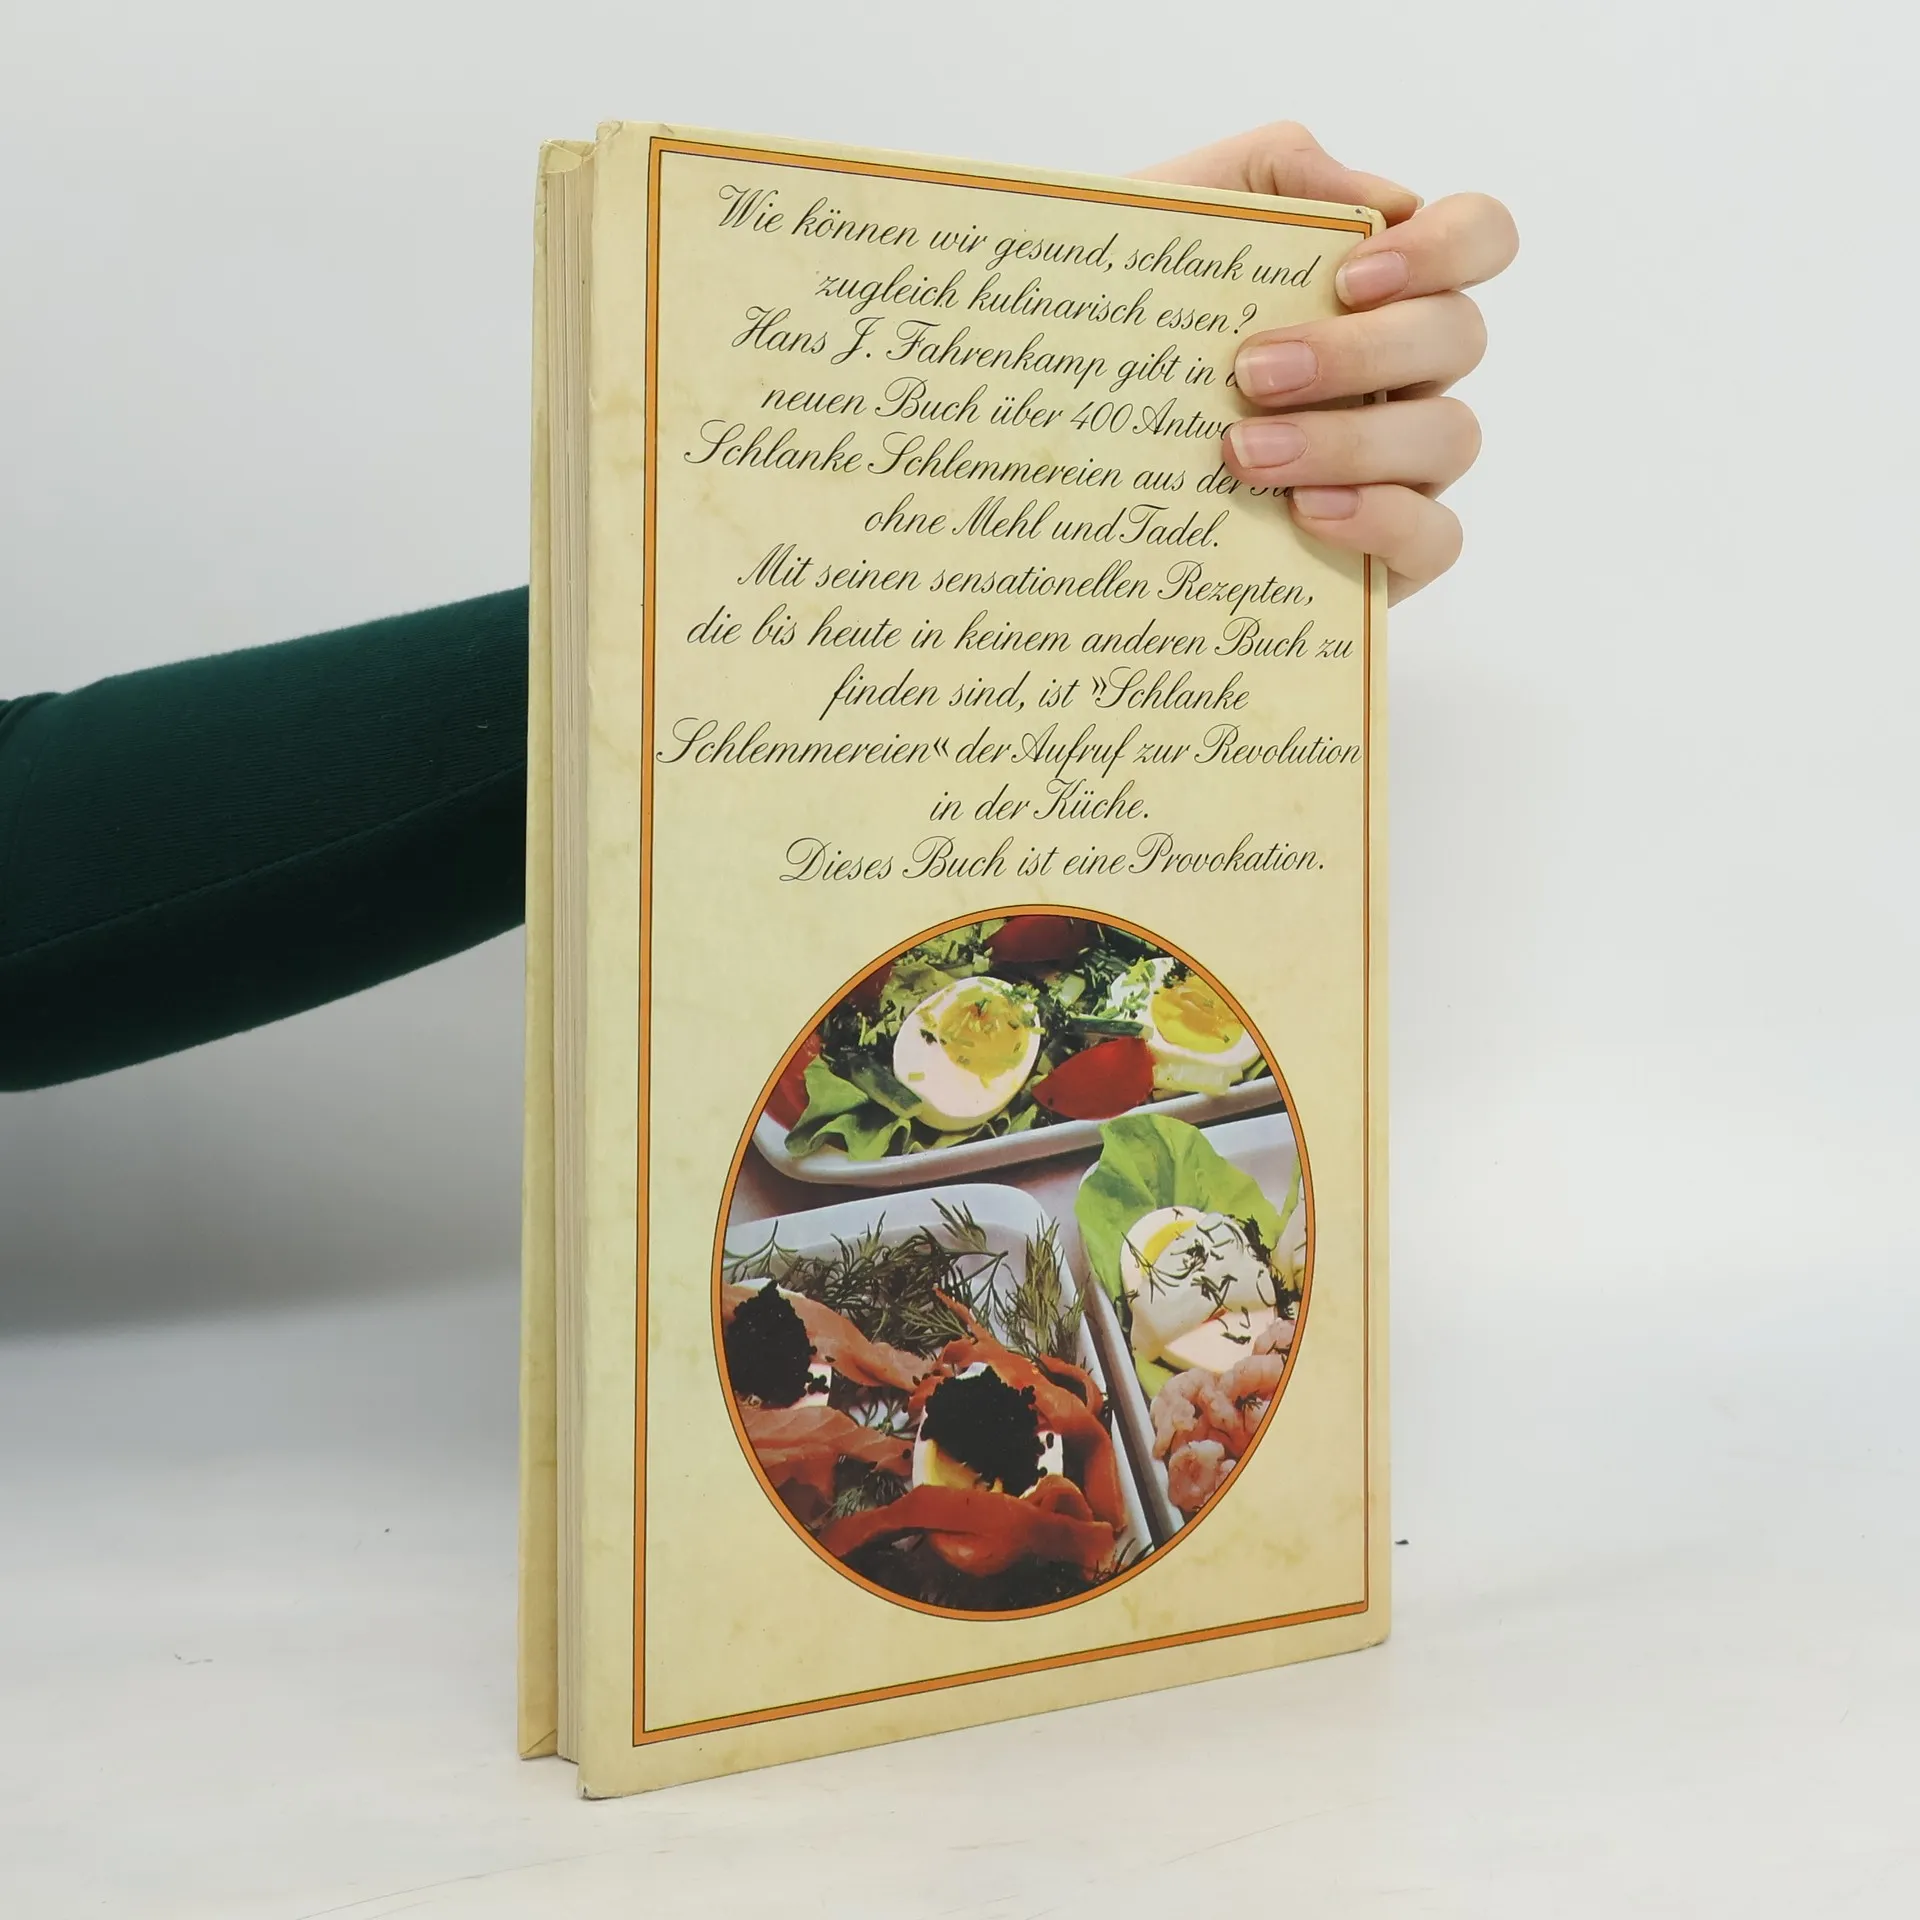 Wie können wir gesund, schlank und
zugleich kulinarisch essen?
Hans J. Fahrenkamp gibt in
neuen Buch über 400
Schlanke Schlemmereien aus der
ohne Mehl und Tadel.
Mit seinen sensationellen Rezepten,
die bis heute in keinem anderen Buch zu
finden sind, ist »Schlanke
Schlemmereien« der Aufruf zur Revolution
in der Küche.
Dieses Buch ist eine Provokation.